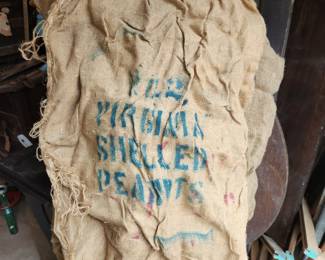 NO.2
VIRGINIA
SHELLED
PEANUTS